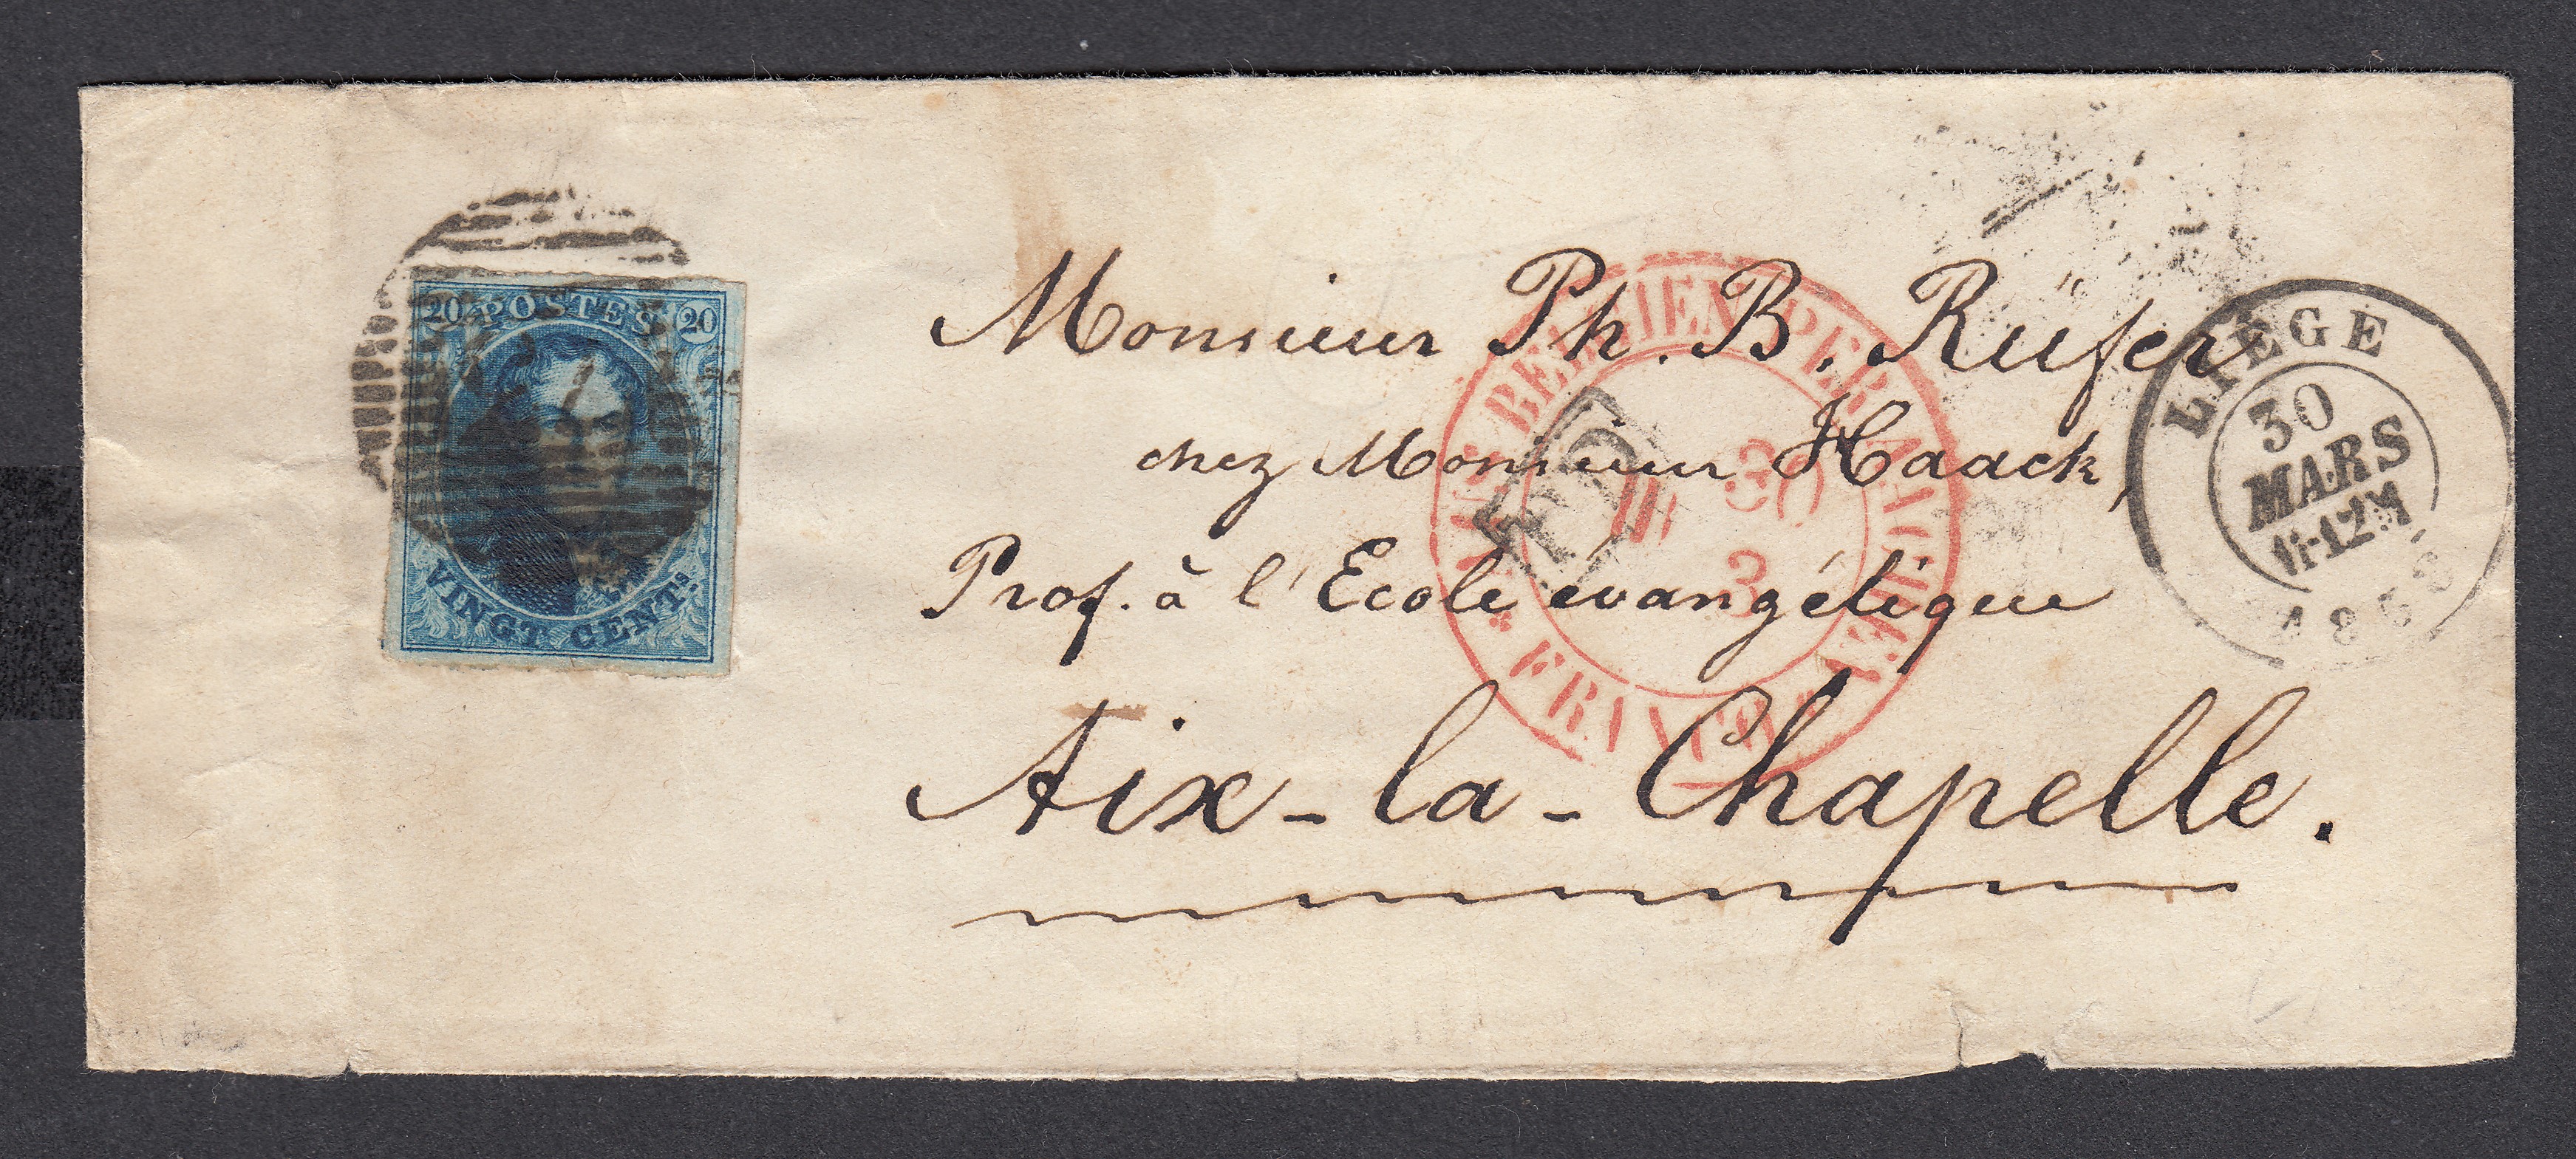 20 POSTES 20
VINGT CENTS
Monsieur Ph. B. Rüfer
chez Monsieur Haack,
Prof. à l'Ecole évangélique
Aix-la-Chapelle.
PD
AUS BELGIEN PER AACHEN
30
3
FRANCO
LIÈGE
30
MARS
11-12M